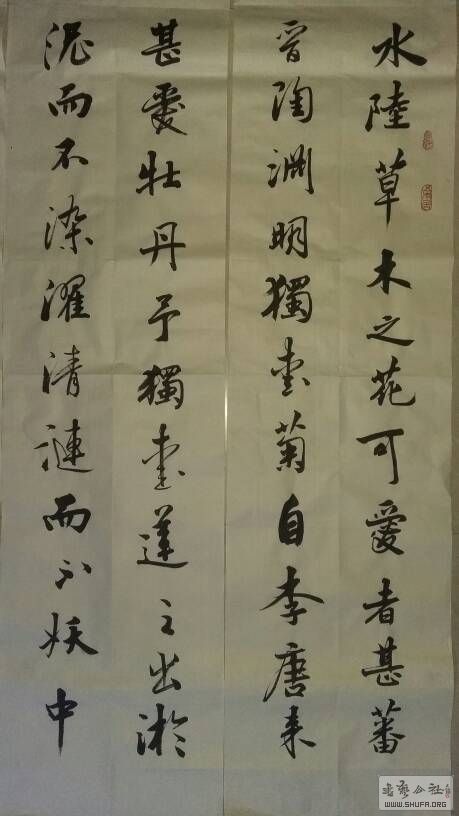 水陸草木之花可愛者甚蕃
晋陶渊明獨爱菊自李唐来
甚愛牡丹予獨爱蓮之出淤
泥而不染濯清漣而不妖中
書藝公社
WWW.SHUFA.ORG